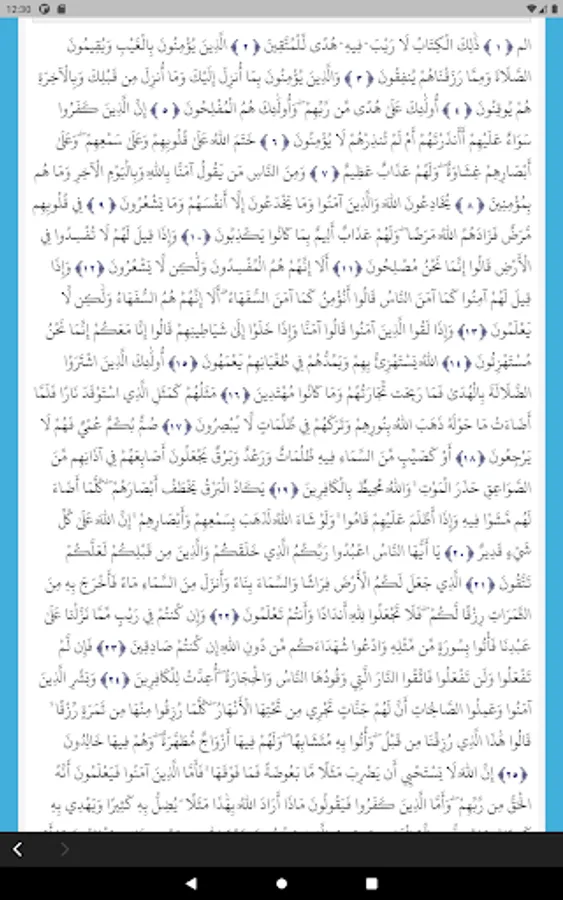 12:30
الم ﴿١﴾ ذَٰلِكَ الْكِتَابُ لَا رَيْبَ ۛ فِيهِ ۛ هُدًى لِّلْمُتَّقِينَ ﴿٢﴾ الَّذِينَ يُؤْمِنُونَ بِالْغَيْبِ وَيُقِيمُونَ
الصَّلَاةَ وَمِمَّا رَزَقْنَاهُمْ يُنفِقُونَ ﴿٣﴾ وَالَّذِينَ يُؤْمِنُونَ بِمَا أُنزِلَ إِلَيْكَ وَمَا أُنزِلَ مِن قَبْلِكَ وَبِالْآخِرَةِ
هُمْ يُوقِنُونَ ﴿٤﴾ أُولَٰئِكَ عَلَىٰ هُدًى مِّن رَّبِّهِمْ ۖ وَأُولَٰئِكَ هُمُ الْمُفْلِحُونَ ﴿٥﴾ إِنَّ الَّذِينَ كَفَرُوا
سَوَاءٌ عَلَيْهِمْ أَأَنذَرْتَهُمْ أَمْ لَمْ تُنذِرْهُمْ لَا يُؤْمِنُونَ ﴿٦﴾ خَتَمَ اللَّهُ عَلَىٰ قُلُوبِهِمْ وَعَلَىٰ سَمْعِهِمْ ۖ وَعَلَىٰ
أَبْصَارِهِمْ غِشَاوَةٌ ۖ وَلَهُمْ عَذَابٌ عَظِيمٌ ﴿٧﴾ وَمِنَ النَّاسِ مَن يَقُولُ آمَنَّا بِاللَّهِ وَبِالْيَوْمِ الْآخِرِ وَمَا هُم
بِمُؤْمِنِينَ ﴿٨﴾ يُخَادِعُونَ اللَّهَ وَالَّذِينَ آمَنُوا وَمَا يَخْدَعُونَ إِلَّا أَنفُسَهُمْ وَمَا يَشْعُرُونَ ﴿٩﴾ فِي قُلُوبِهِم
مَّرَضٌ فَزَادَهُمُ اللَّهُ مَرَضًا ۖ وَلَهُمْ عَذَابٌ أَلِيمٌ بِمَا كَانُوا يَكْذِبُونَ ﴿١٠﴾ وَإِذَا قِيلَ لَهُمْ لَا تُفْسِدُوا فِي
الْأَرْضِ قَالُوا إِنَّمَا نَحْنُ مُصْلِحُونَ ﴿١١﴾ أَلَا إِنَّهُمْ هُمُ الْمُفْسِدُونَ وَلَٰكِن لَّا يَشْعُرُونَ ﴿١٢﴾ وَإِذَا
قِيلَ لَهُمْ آمِنُوا كَمَا آمَنَ النَّاسُ قَالُوا أَنُؤْمِنُ كَمَا آمَنَ السُّفَهَاءُ ۗ أَلَا إِنَّهُمْ هُمُ السُّفَهَاءُ وَلَٰكِن لَّا
يَعْلَمُونَ ﴿١٣﴾ وَإِذَا لَقُوا الَّذِينَ آمَنُوا قَالُوا آمَنَّا وَإِذَا خَلَوْا إِلَىٰ شَيَاطِينِهِمْ قَالُوا إِنَّا مَعَكُمْ إِنَّمَا نَحْنُ
مُسْتَهْزِئُونَ ﴿١٤﴾ اللَّهُ يَسْتَهْزِئُ بِهِمْ وَيَمُدُّهُمْ فِي طُغْيَانِهِمْ يَعْمَهُونَ ﴿١٥﴾ أُولَٰئِكَ الَّذِينَ اشْتَرَوُا
الضَّلَالَةَ بِالْهُدَىٰ فَمَا رَبِحَت تِّجَارَتُهُمْ وَمَا كَانُوا مُهْتَدِينَ ﴿١٦﴾ مَثَلُهُمْ كَمَثَلِ الَّذِي اسْتَوْقَدَ نَارًا فَلَمَّا
أَضَاءَتْ مَا حَوْلَهُ ذَهَبَ اللَّهُ بِنُورِهِمْ وَتَرَكَهُمْ فِي ظُلُمَاتٍ لَّا يُبْصِرُونَ ﴿١٧﴾ صُمٌّ بُكْمٌ عُمْيٌ فَهُمْ لَا
يَرْجِعُونَ ﴿١٨﴾ أَوْ كَصَيِّبٍ مِّنَ السَّمَاءِ فِيهِ ظُلُمَاتٌ وَرَعْدٌ وَبَرْقٌ يَجْعَلُونَ أَصَابِعَهُمْ فِي آذَانِهِم مِّنَ
الصَّوَاعِقِ حَذَرَ الْمَوْتِ ۚ وَاللَّهُ مُحِيطٌ بِالْكَافِرِينَ ﴿١٩﴾ يَكَادُ الْبَرْقُ يَخْطَفُ أَبْصَارَهُمْ ۖ كُلَّمَا أَضَاءَ
لَهُم مَّشَوْا فِيهِ وَإِذَا أَظْلَمَ عَلَيْهِمْ قَامُوا ۚ وَلَوْ شَاءَ اللَّهُ لَذَهَبَ بِسَمْعِهِمْ وَأَبْصَارِهِمْ ۚ إِنَّ اللَّهَ عَلَىٰ كُلِّ
شَيْءٍ قَدِيرٌ ﴿٢٠﴾ يَا أَيُّهَا النَّاسُ اعْبُدُوا رَبَّكُمُ الَّذِي خَلَقَكُمْ وَالَّذِينَ مِن قَبْلِكُمْ لَعَلَّكُمْ
تَتَّقُونَ ﴿٢١﴾ الَّذِي جَعَلَ لَكُمُ الْأَرْضَ فِرَاشًا وَالسَّمَاءَ بِنَاءً وَأَنزَلَ مِنَ السَّمَاءِ مَاءً فَأَخْرَجَ بِهِ مِنَ
الثَّمَرَاتِ رِزْقًا لَّكُمْ ۖ فَلَا تَجْعَلُوا لِلَّهِ أَندَادًا وَأَنتُمْ تَعْلَمُونَ ﴿٢٢﴾ وَإِن كُنتُمْ فِي رَيْبٍ مِّمَّا نَزَّلْنَا عَلَىٰ
عَبْدِنَا فَأْتُوا بِسُورَةٍ مِّن مِّثْلِهِ وَادْعُوا شُهَدَاءَكُم مِّن دُونِ اللَّهِ إِن كُنتُمْ صَادِقِينَ ﴿٢٣﴾ فَإِن لَّمْ
تَفْعَلُوا وَلَن تَفْعَلُوا فَاتَّقُوا النَّارَ الَّتِي وَقُودُهَا النَّاسُ وَالْحِجَارَةُ ۖ أُعِدَّتْ لِلْكَافِرِينَ ﴿٢٤﴾ وَبَشِّرِ الَّذِينَ
آمَنُوا وَعَمِلُوا الصَّالِحَاتِ أَنَّ لَهُمْ جَنَّاتٍ تَجْرِي مِن تَحْتِهَا الْأَنْهَارُ ۖ كُلَّمَا رُزِقُوا مِنْهَا مِن ثَمَرَةٍ رِّزْقًا ۙ
قَالُوا هَٰذَا الَّذِي رُزِقْنَا مِن قَبْلُ ۖ وَأُتُوا بِهِ مُتَشَابِهًا ۖ وَلَهُمْ فِيهَا أَزْوَاجٌ مُّطَهَّرَةٌ ۖ وَهُمْ فِيهَا خَالِدُونَ
﴿٢٥﴾ إِنَّ اللَّهَ لَا يَسْتَحْيِي أَن يَضْرِبَ مَثَلًا مَّا بَعُوضَةً فَمَا فَوْقَهَا ۚ فَأَمَّا الَّذِينَ آمَنُوا فَيَعْلَمُونَ أَنَّهُ
الْحَقُّ مِن رَّبِّهِمْ ۖ وَأَمَّا الَّذِينَ كَفَرُوا فَيَقُولُونَ مَاذَا أَرَادَ اللَّهُ بِهَٰذَا مَثَلًا ۘ يُضِلُّ بِهِ كَثِيرًا وَيَهْدِي بِهِ